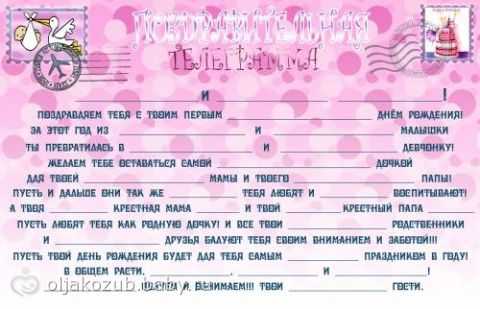 ПОЗДРАВИТЕЛЬНАЯ
ТЕЛЕГРАММА
____________ И ____________ ____________!
ПОЗДРАВЛЯЕМ ТЕБЯ С ТВОИМ ПЕРВЫМ ____________ ДНЁМ РОЖДЕНИЯ!
ЗА ЭТОТ ГОД ИЗ ____________ И ____________ МАЛЫШКИ
ТЫ ПРЕВРАТИЛАСЬ В ____________ И ____________ ДЕВЧОНКУ!
ЖЕЛАЕМ ТЕБЕ ОСТАВАТЬСЯ САМОЙ ____________ ДОЧКОЙ
ДЛЯ ТВОЕЙ ____________ МАМЫ И ТВОЕГО ____________ ПАПЫ!
ПУСТЬ И ДАЛЬШЕ ОНИ ТАК ЖЕ ____________ ТЕБЯ ЛЮБЯТ И ____________ ВОСПИТЫВАЮТ!
А ТВОЯ ____________ КРЕСТНАЯ МАМА ____________ И ТВОЙ ____________ КРЕСТНЫЙ ПАПА ____________
ПУСТЬ ЛЮБЯТ ТЕБЯ КАК РОДНУЮ ДОЧКУ! И ВСЕ ТВОИ ____________ РОДСТВЕННИКИ
И ____________ ДРУЗЬЯ БАЛУЮТ ТЕБЯ СВОИМ ВНИМАНИЕМ И ЗАБОТОЙ!!!
ПУСТЬ ТВОЙ ДЕНЬ РОЖДЕНИЯ БУДЕТ ДЛЯ ТЕБЯ САМЫМ ____________ ПРАЗДНИКОМ В ГОДУ!
В ОБЩЕМ РАСТИ, ____________, ____________ И ____________
oljakozub.baby
И, ОБНИМАЕМ!!! ТВОИ ____________ ГОСТИ.